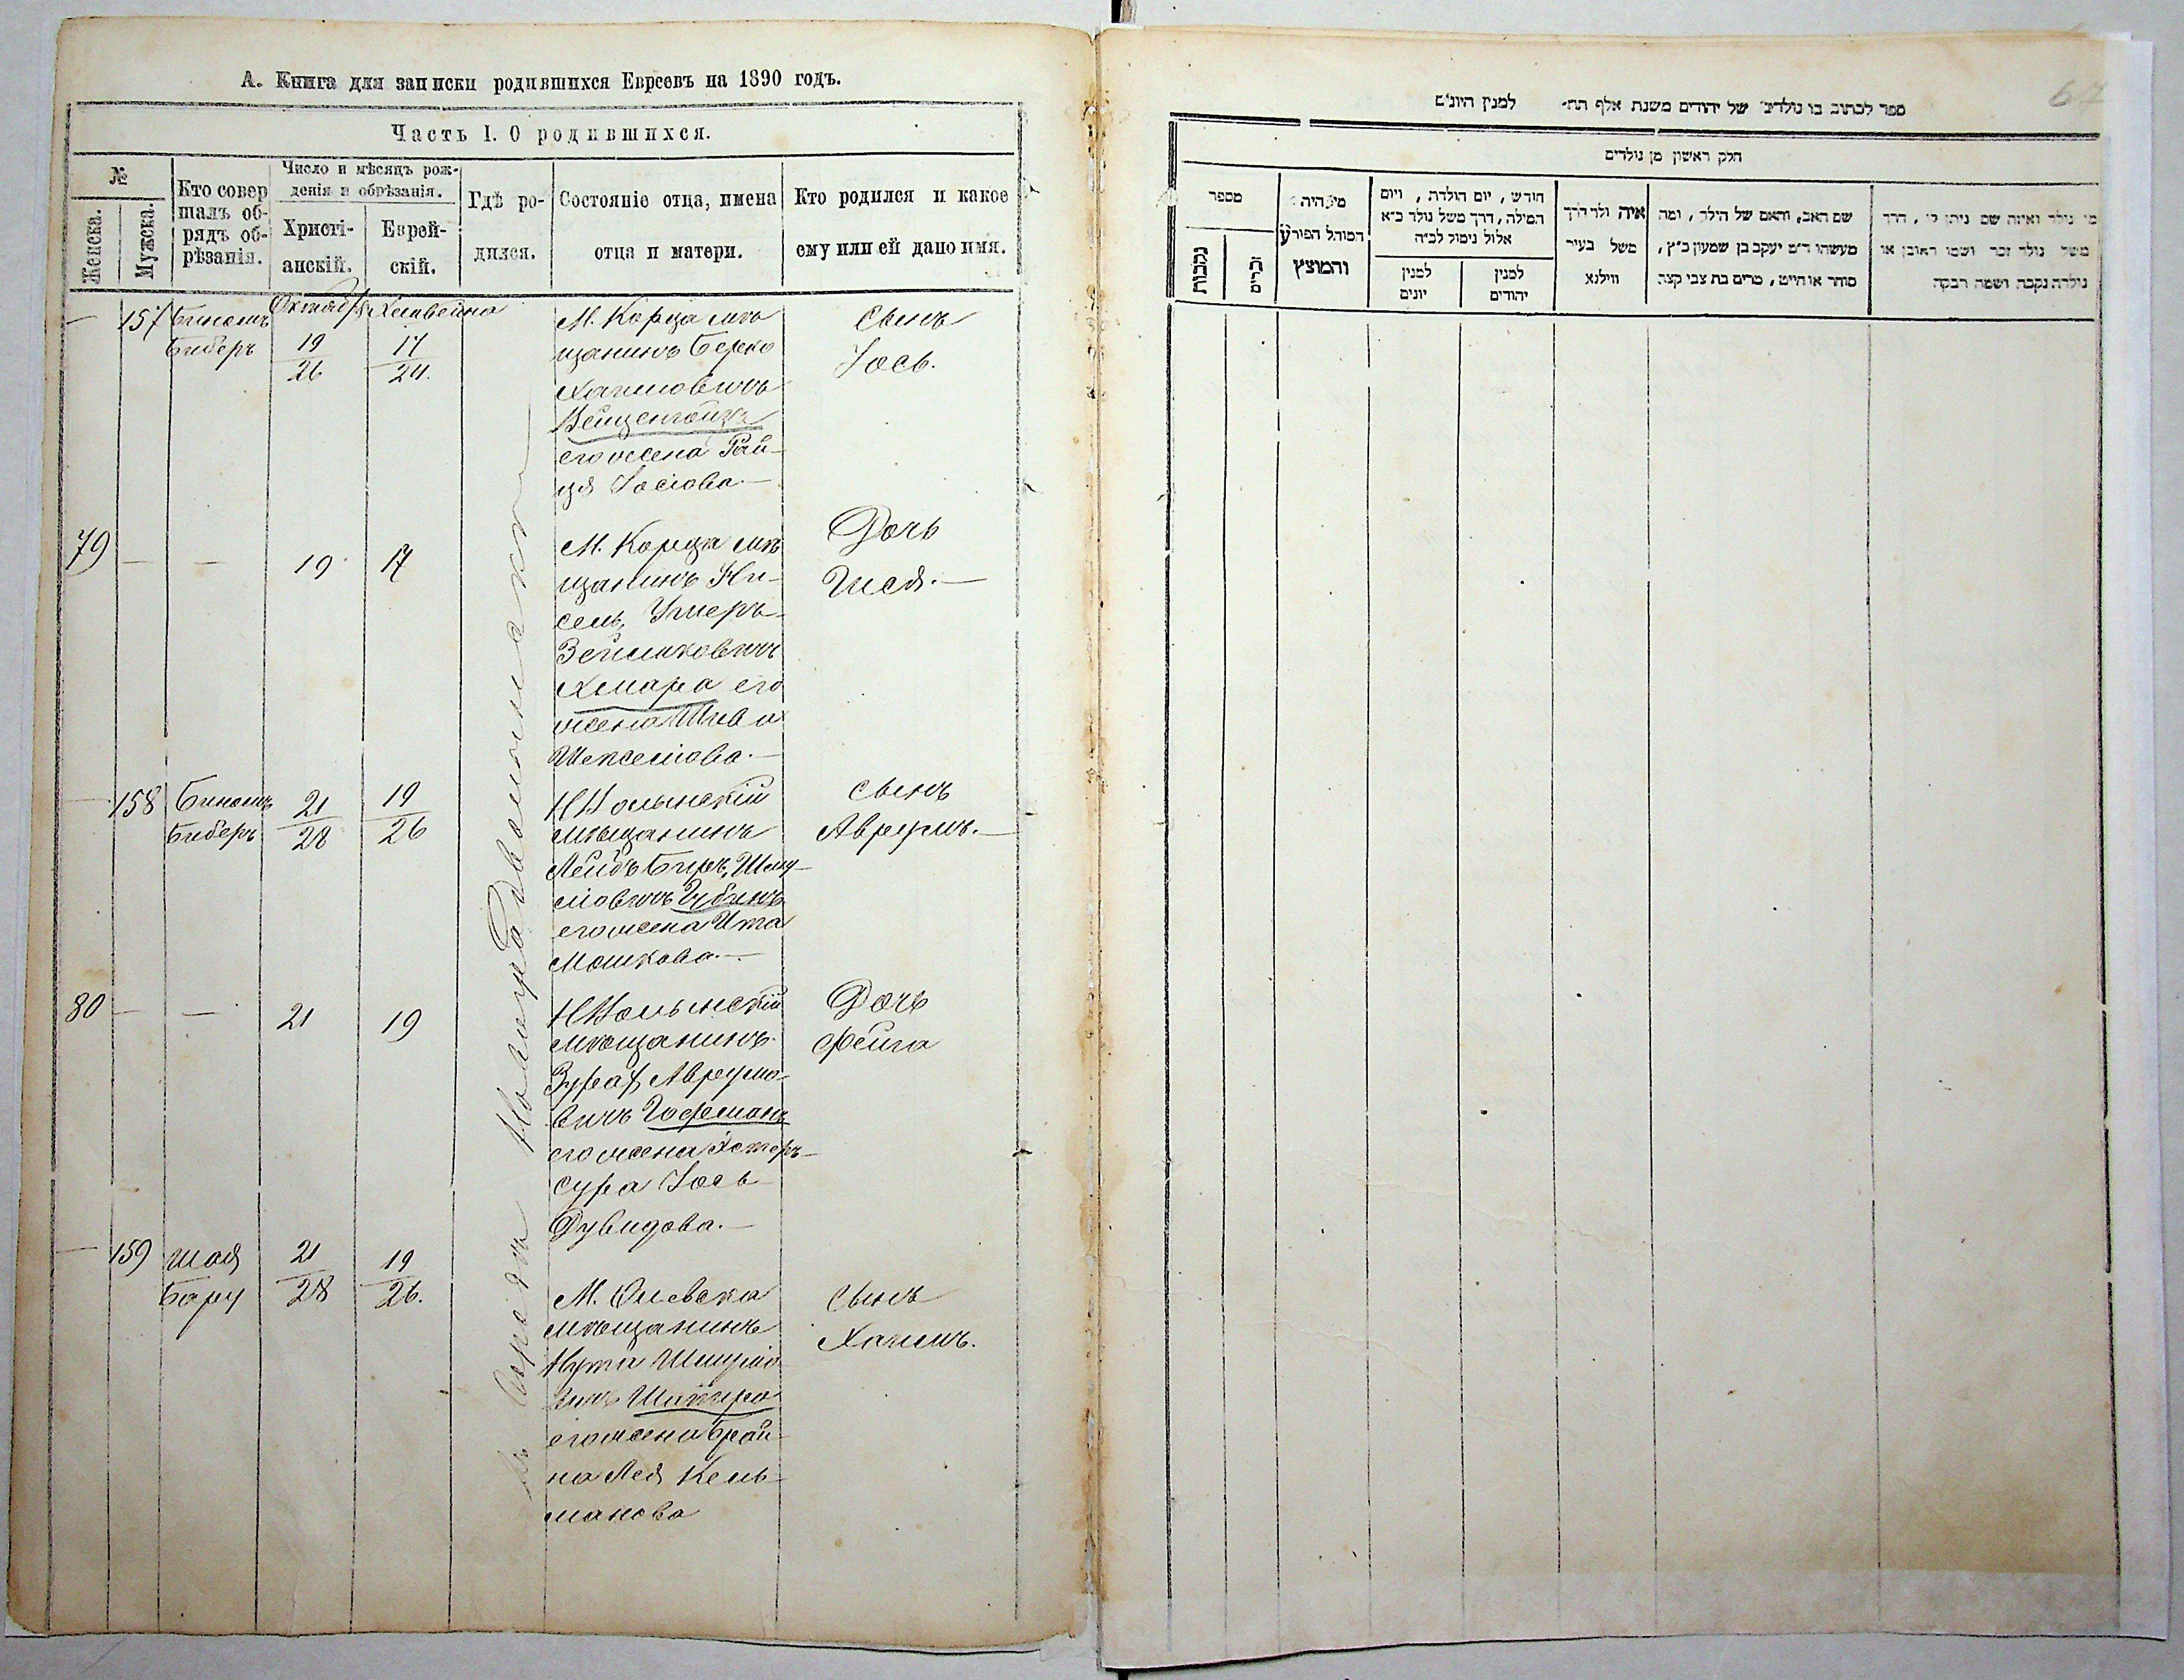 А. Книга для записки родившихся Евреевъ на 1890 годъ.
Часть I. О родившихся.
№
Женска.
Мужска.
Кто совер
шалъ об-
рядъ об-
рѣзанія.
Число и мѣсяцъ рож-
денія и обрѣзанія.
Христі-
анскій.
Еврей-
скій.
Гдѣ ро-
дился.
Состояніе отца, имена
отца и матери.
Кто родился и какое
ему или ей дано имя.
Въ городѣ Новоградволынскѣ
— 157 Биномъ
Биберъ
Октября Хешвейна
19 17
26 24.
М. Корца мѣ
щанинъ Берко
Хаимовичъ
его жена Рай-
ця Іосіова.—
Сынъ
Іось.
79 — — 19 17
М. Корца мѣ
щанинъ Ни-
сель, Умеръ-
Зейликовичъ
Хмара его
жена Шева
Дочь
Гися.—
— 158 Биномъ
Биберъ
21 19
28 26
НВолынскій
мѣщанинъ
Лейбъ Беръ, Шму-
ліовичъ Губинъ
его жена Ита
Мошкова.—
Сынъ
Аврумъ.—
80 — — 21 19
НВолынскій
мѣщанинъ
Аврумо-
вичъ Гофманъ
его жена Эстеръ-
Сура Іось
Дувидова.—
Дочь
Фейга
— 159 Шая
Бару
21 19
28 26.
М. Олевска
мѣщанинъ
Нута Шмуліо
вичъ Шапиро
его жена Брай-
на Лея Кель-
манова
Сынъ
Хаимъ.
67
ספר לכתוב בו נולדים של יהודים משנת אלף תת׳ למנין היונים
חלק ראשון מן נולדים
מספר
נקבות
זכרים
מי היה
המוהל הפורע
והמוצץ
חודש, יום הולדת, ויום
המילה, דרך משל נולד כ״א
אלול נימול לכ״ה
למנין
יונים
למנין
יהודים
איה ולד דרך
משל בעיר
ווילנא
שם האב, והאם של הילד, ומה
מעשהו ד״מ יעקב בן שמעון כ״ץ,
סוחר או חייט, מרים בת צבי קצב
מי נולד ואיזה שם ניתן לו, דרך
משל נולד זכר ושמו ראובן או
נולדה נקבה ושמה רבקה